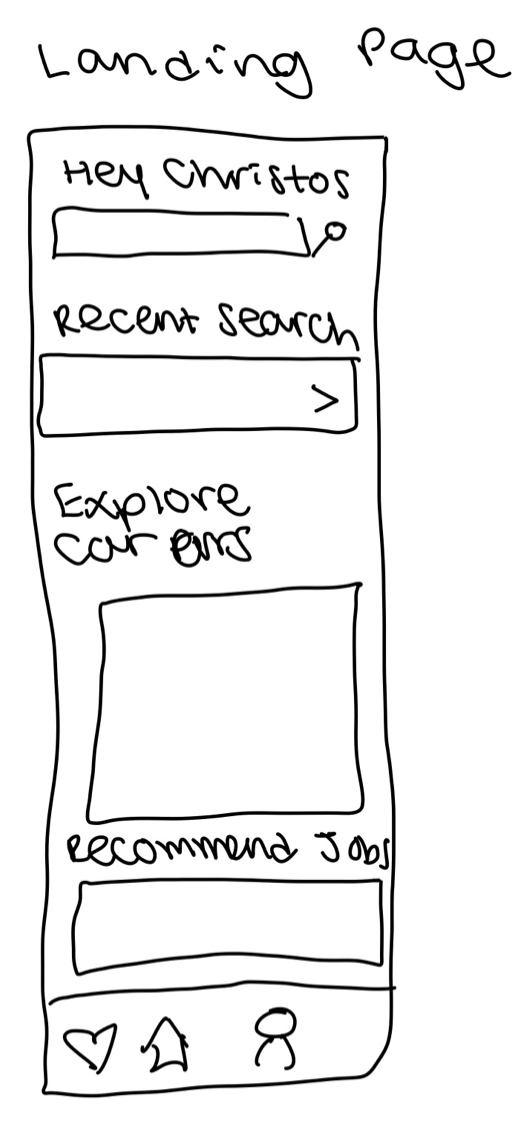 Landing Page
Hey Christos
Recent Search
>
Explore
Recommend Jobs